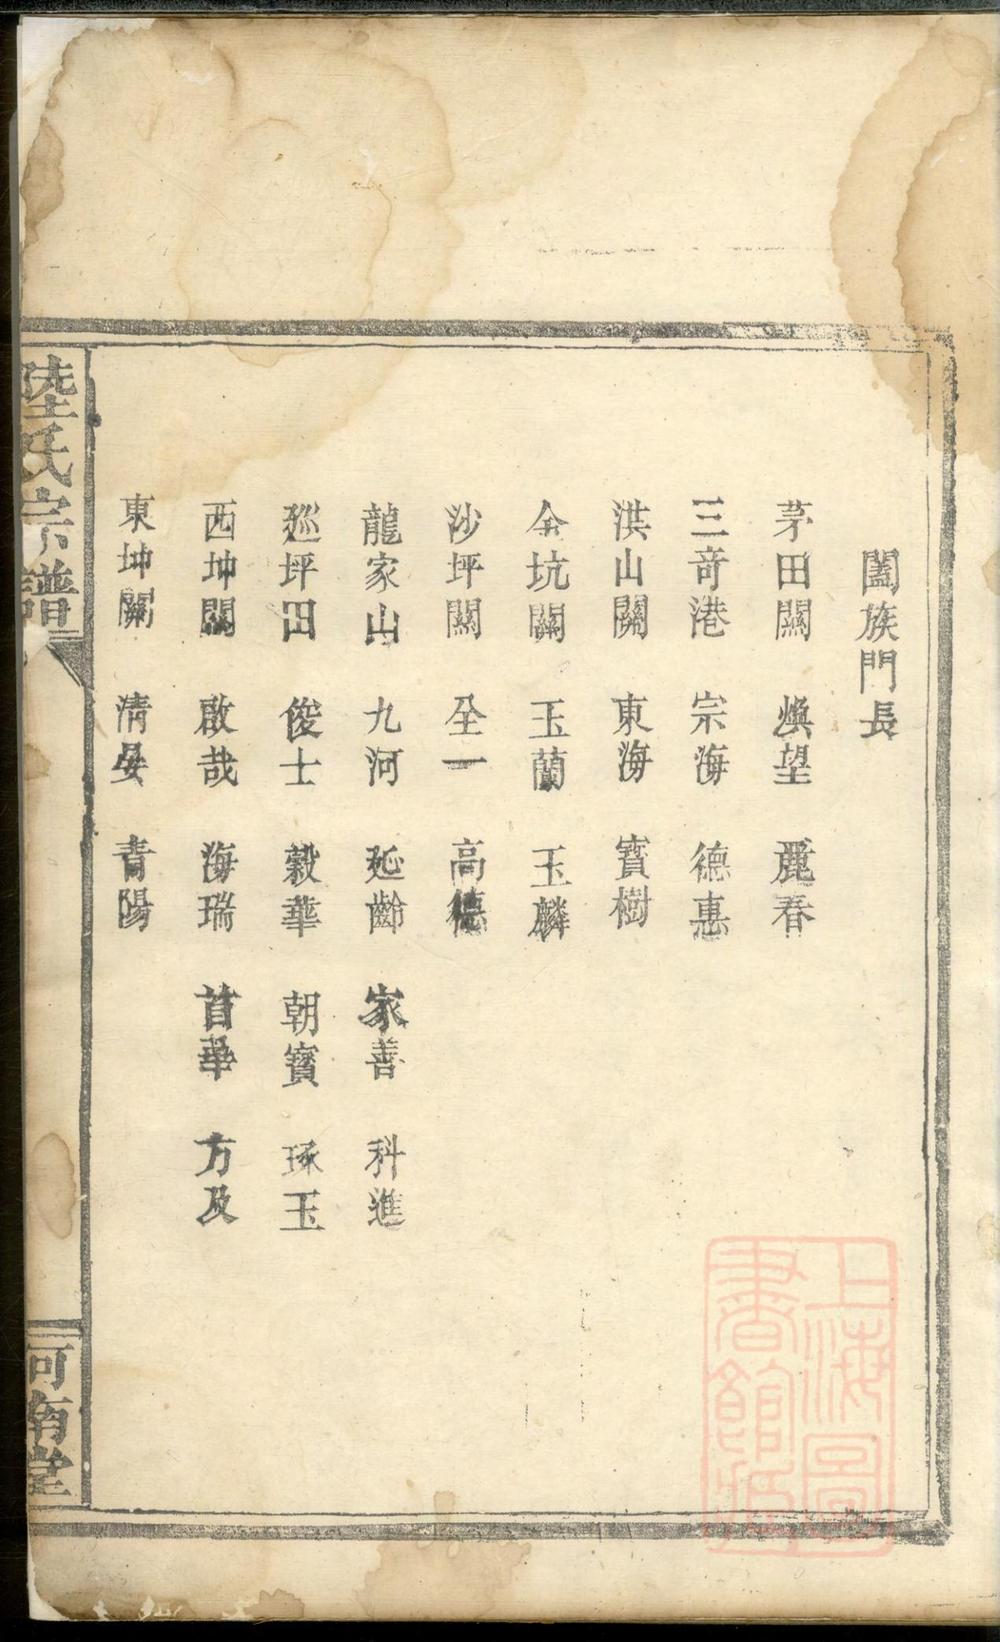 闔族門長
茅田關 煥望 麗春
三奇港 宗海 德惠
洪山關 東海 寶樹
余坑關 玉蘭 玉麟
沙坪關 全一 高德
龍家山 九河 延齡 家善 科進
坪田 俊士 穀華 朝賓 琢玉
西坤關 啟哉 海瑞 首華 方及
東坤關 清晏 青陽
陸氏宗譜
河南堂
上海圖書館藏